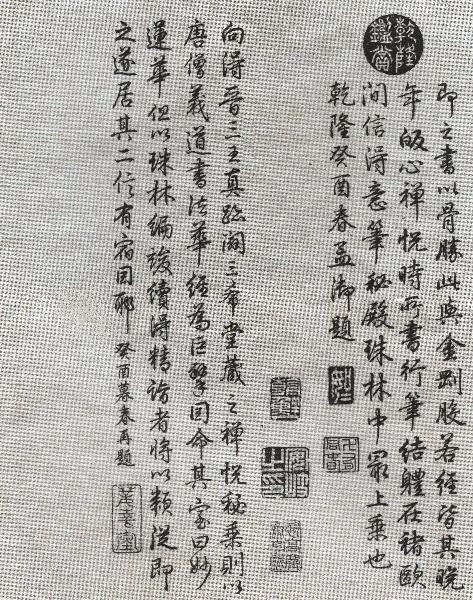 乾隆鑑賞
即之書以骨勝此與金剛般若經皆其晚
年皈心禪悅時所書行筆結體在褚歐
間信得意筆秘殿珠林中冣上乘也
乾隆癸酉春孟御題
向得晉三王真跡闢三希堂藏之禪悅秘乘則以
唐僧義道書法華經為巨擘因命其室曰妙
蓮華但以珠林編竣續得精詣者將以類從即
之遂居其二信有宿因耶 癸酉暮春再題